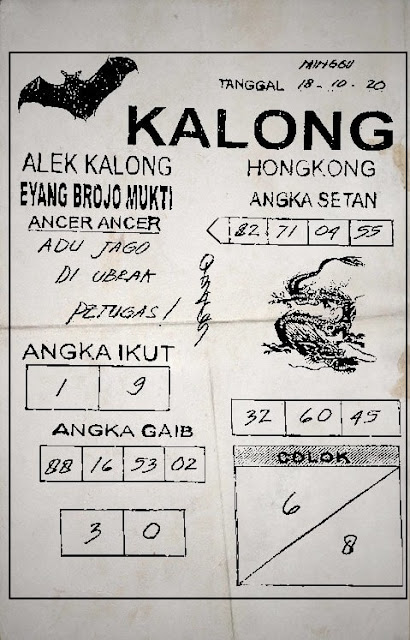 MINGGU
TANGGAL 18-10-20
KALONG
ALEK KALONG
EYANG BROJO MUKTI
ANCER ANCER
ADU JAGO
DI UBRAK
PETUGAS!
HONGKONG
ANGKA SETAN
82 71 09 55
ANGKA IKUT
1 9
ANGKA GAIB
88 16 53 02
3 0
32 60 45
COLOK
6
8